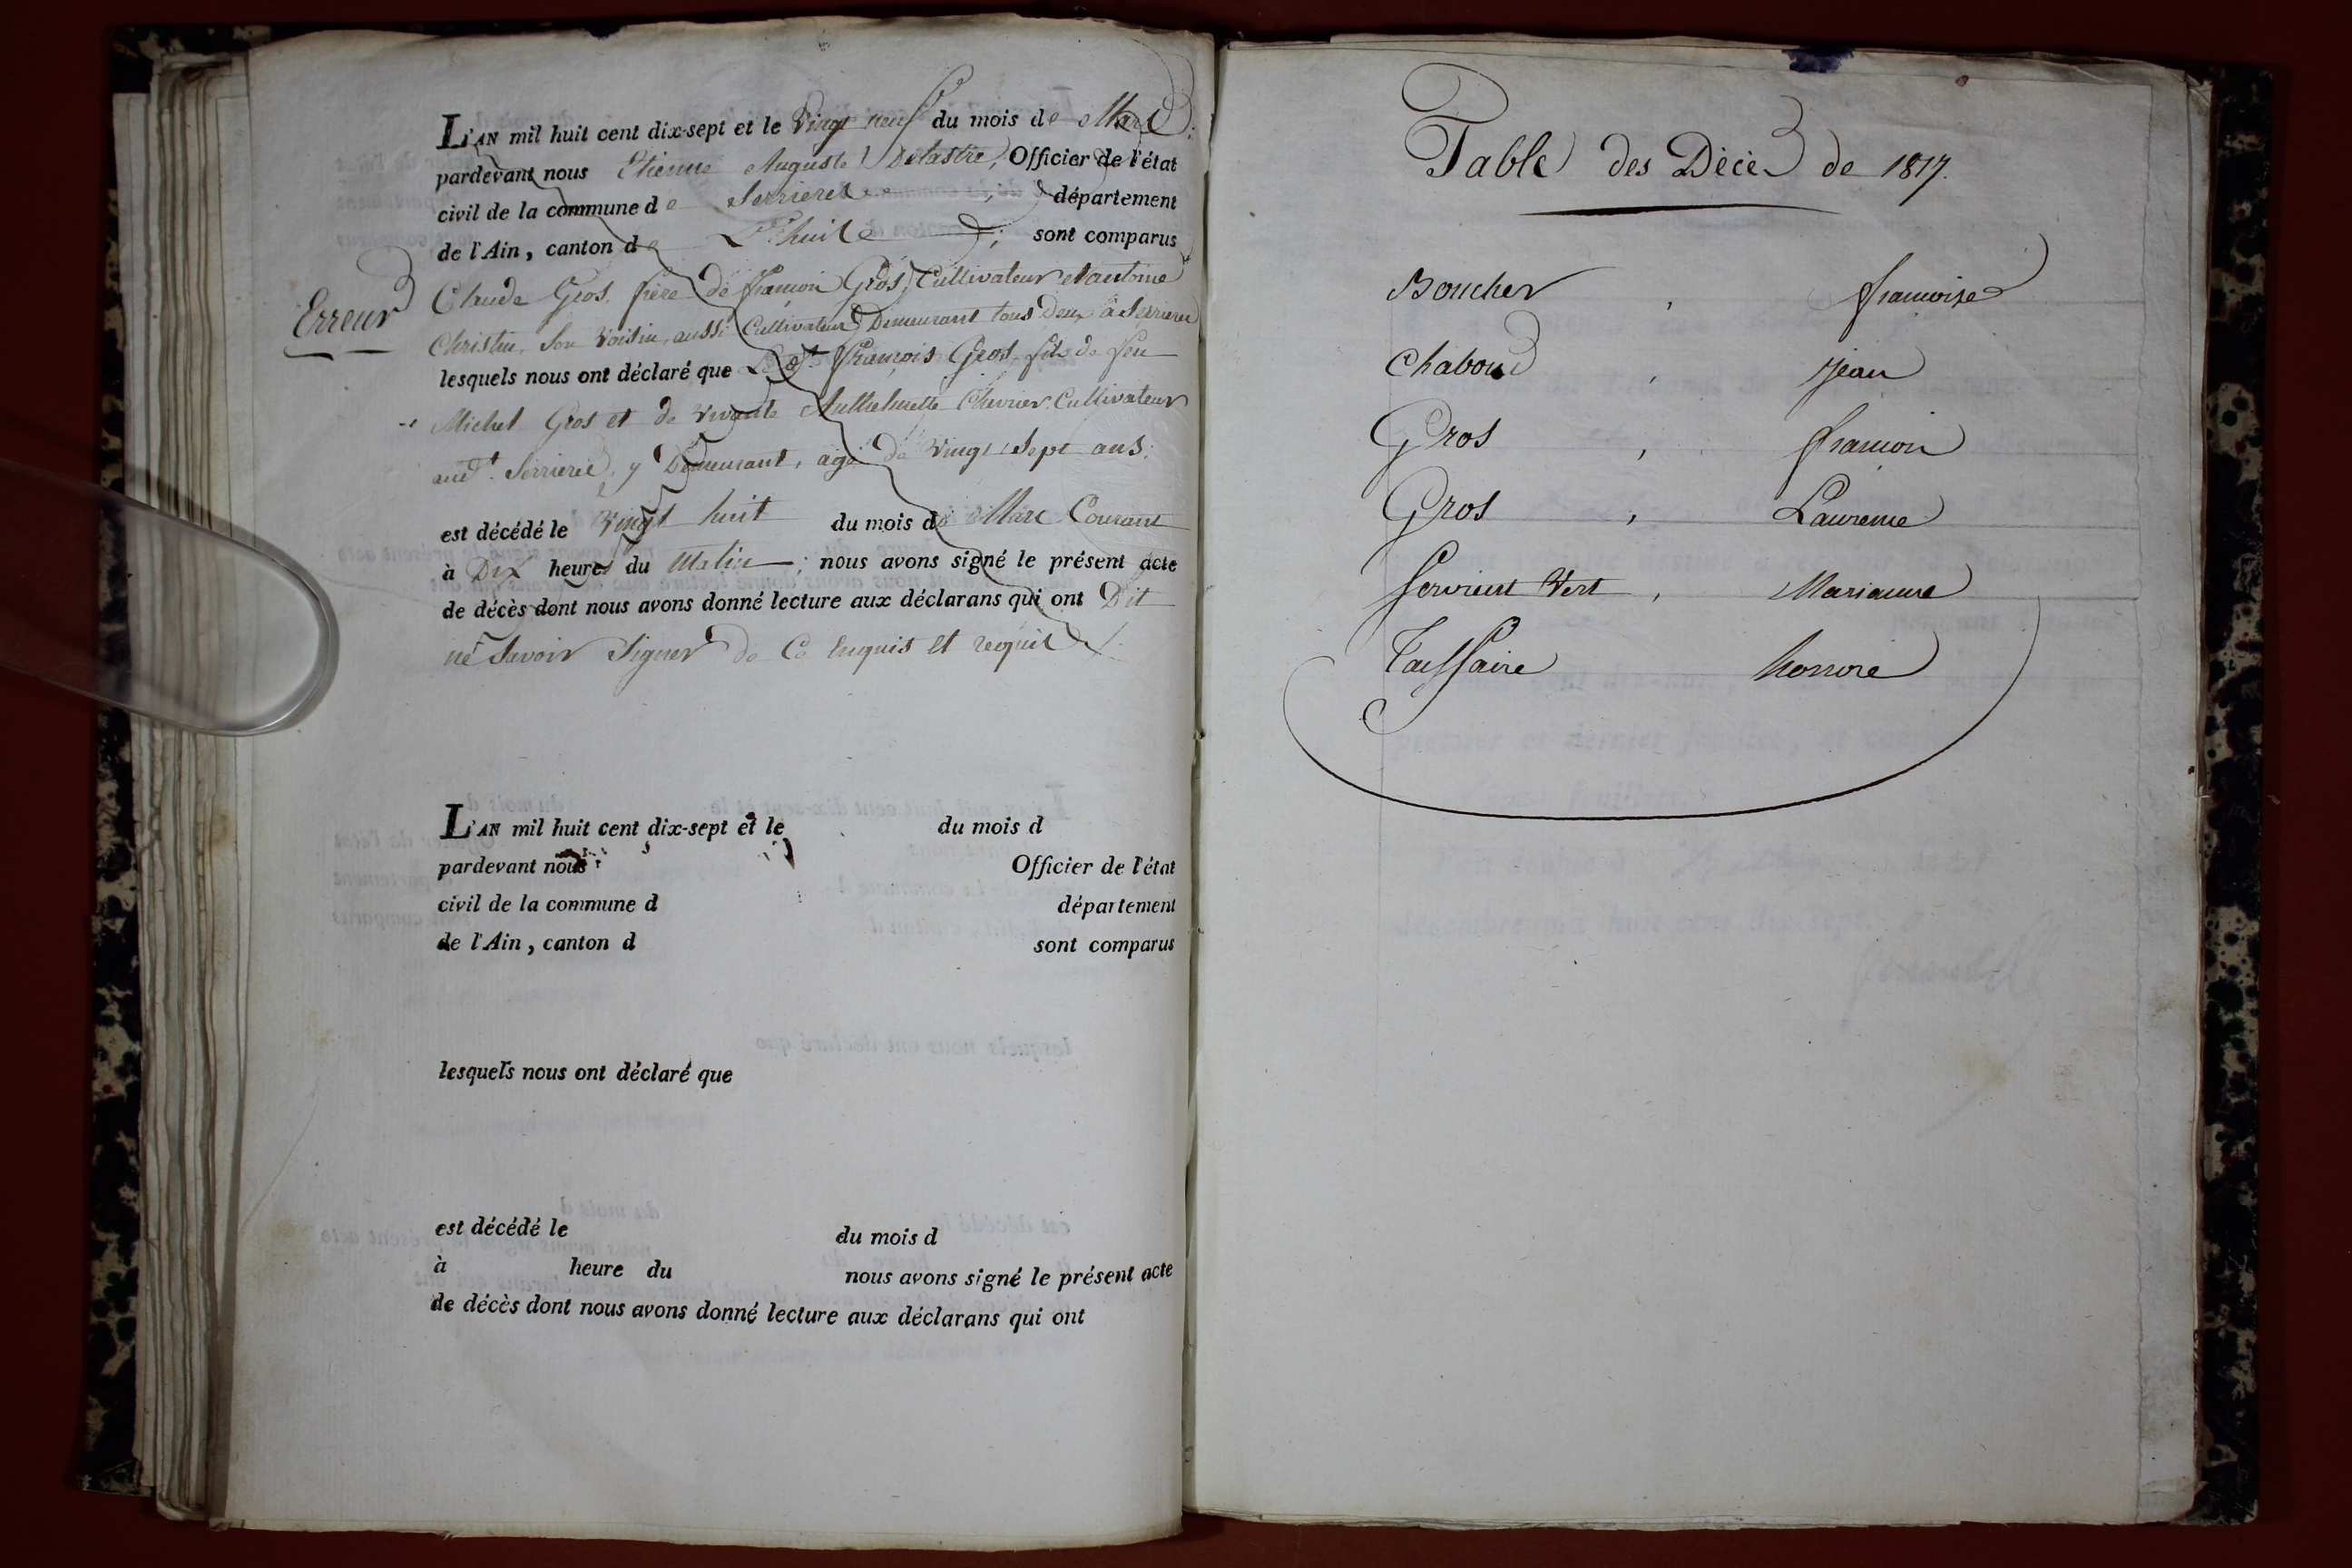 L'AN mil huit cent dix-sept et le Vingt neuf du mois de Mars;
pardevant nous Etienne Auguste Delastre, Officier de l'état
civil de la commune de Serrieres; département
de l'Ain, canton de L'huis; sont comparus
Erreur
Claude Gros, frère de françois Gros, Cultivateur et antoine
Christin, Son Voisin, aussi Cultivateur Demeurant tous Deux à Serrieres
lesquels nous ont déclaré que Le dt. François Gros, fils de feu
Michel Gros et de vivante Anthelmette Chevrier Cultivateur
aud. Serrieres, y Demeurant, agé de Vingt Sept ans;
est décédé le Vingt huit du mois de Mars Courant
à Dix heures du Matin; nous avons signé le présent acte
de décès dont nous avons donné lecture aux déclarans qui ont Dit
ne Savoir Signer de Ce Enquis et requis
L'AN mil huit cent dix-sept et le du mois d
pardevant nous Officier de l'état
civil de la commune d département
de l'Ain, canton d sont comparus
lesquels nous ont déclaré que
est décédé le du mois d
à heure du nous avons signé le présent acte
de décès dont nous avons donné lecture aux déclarans qui ont
Table des Décès de 1817.
Boucher, françoise
Chaboud, Jean
Gros, françois
Gros, Laurence
Servient Vert, Marianne
Taissaire honoré